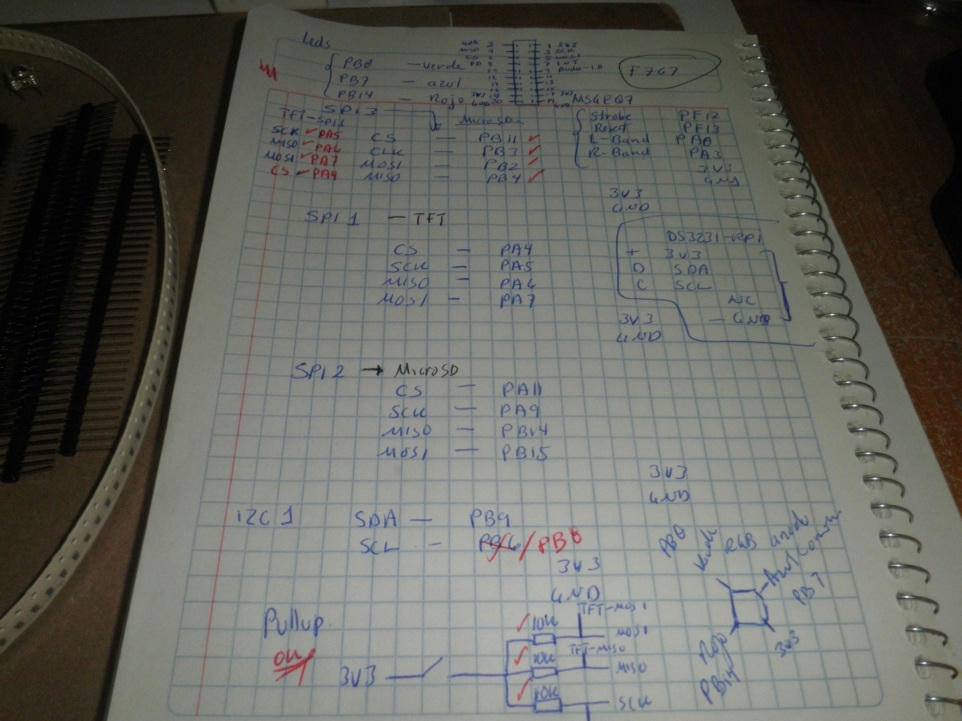 Leds
PB0 — verde
PB7 — azul
PB14 — Rojo
F767
MSGEQ7
Strobe PF12
Reset PF13
L-Band PA0
R-Band PA3
3V3
GND
SPI3
MicroSD
TFT-SPI1
SCK PA5
MISO PA6
MOSI PA7
CS PA4
CS — PB11
CLK — PB3
MOSI — PB2
MISO — PB4
3V3
GND
SPI 1 — TFT
CS — PA4
SCK — PA5
MISO — PA6
MOSI — PA7
DS3231-RPI
+ 3V3
D SDA
C SCL
NC
— GND
3V3
GND
SPI 2 → MicroSD
CS — PA11
SCK — PA9
MISO — PB14
MOSI — PB15
3V3
GND
I2C 1 SDA — PB9
SCL — PB6 / PB8
3V3
GND
PB0
Verde
RGB anodo
Comun
Azul
PB7
Rojo
PB14
3V3
Pullup
OK
3V3
10K
TFT-MOSI
MOSI
10K
TFT-MISO
MISO
10K
SCK